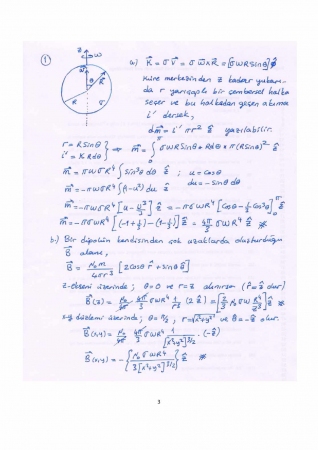 ①
z
ω
R
θ
R
σ
a) K⃗ = σ V⃗ = σ ω⃗ x R⃗ = [σ ω R sinθ] φ̂
Küre merkezinden z kadar yukarı-
da r yarıçaplı bir çembersel halka
seçer ve bu halkadan geçen akıma
i' dersek,
dm⃗ = i' πr² ẑ yazılabilir.
r = R sinθ
i' = K R dθ } ⇒ m⃗ = ∫₀^π σ ω R sinθ * R dθ * π (R sinθ)² ẑ
m⃗ = π ω σ R⁴ ∫ sin³θ dθ ẑ ; u = cosθ
m⃗ = -π ω σ R⁴ ∫ (1-u²) du ẑ du = - sinθ dθ
m⃗ = -π ω σ R⁴ [u - u³/3] ẑ = -π σ ω R⁴ [cosθ - 1/3 cos³θ]₀^π ẑ
m⃗ = -π σ ω R⁴ [(-1+1/3) - (1-1/3)] ẑ = 4π/3 σ ω R⁴ ẑ
b) Bir dipolün kendisinden çok uzaklarda oluşturduğu
B⃗ alanı,
B⃗ = μ₀ m / 4πr³ [2cosθ r̂ + sinθ θ̂]
z-ekseni üzerinde ; θ=0 ve r=z alınırsa (r̂=ẑ olur)
B⃗(z) = μ₀/4π 4π/3 σ ω R⁴ 1/z³ (2 ẑ) = [2/3 μ₀ σ ω R⁴/z³] ẑ
x-y düzlemi üzerinde ; θ=π/2, r=√x²+y² ve θ̂=-ẑ olur.
B⃗(x,y) = μ₀/4π 4π/3 σ ω R⁴ 1/[x²+y²]^3/2 · (-ẑ)
B⃗(x,y) = - { μ₀ σ ω R⁴ / 3[x²+y²]^3/2 } ẑ
3